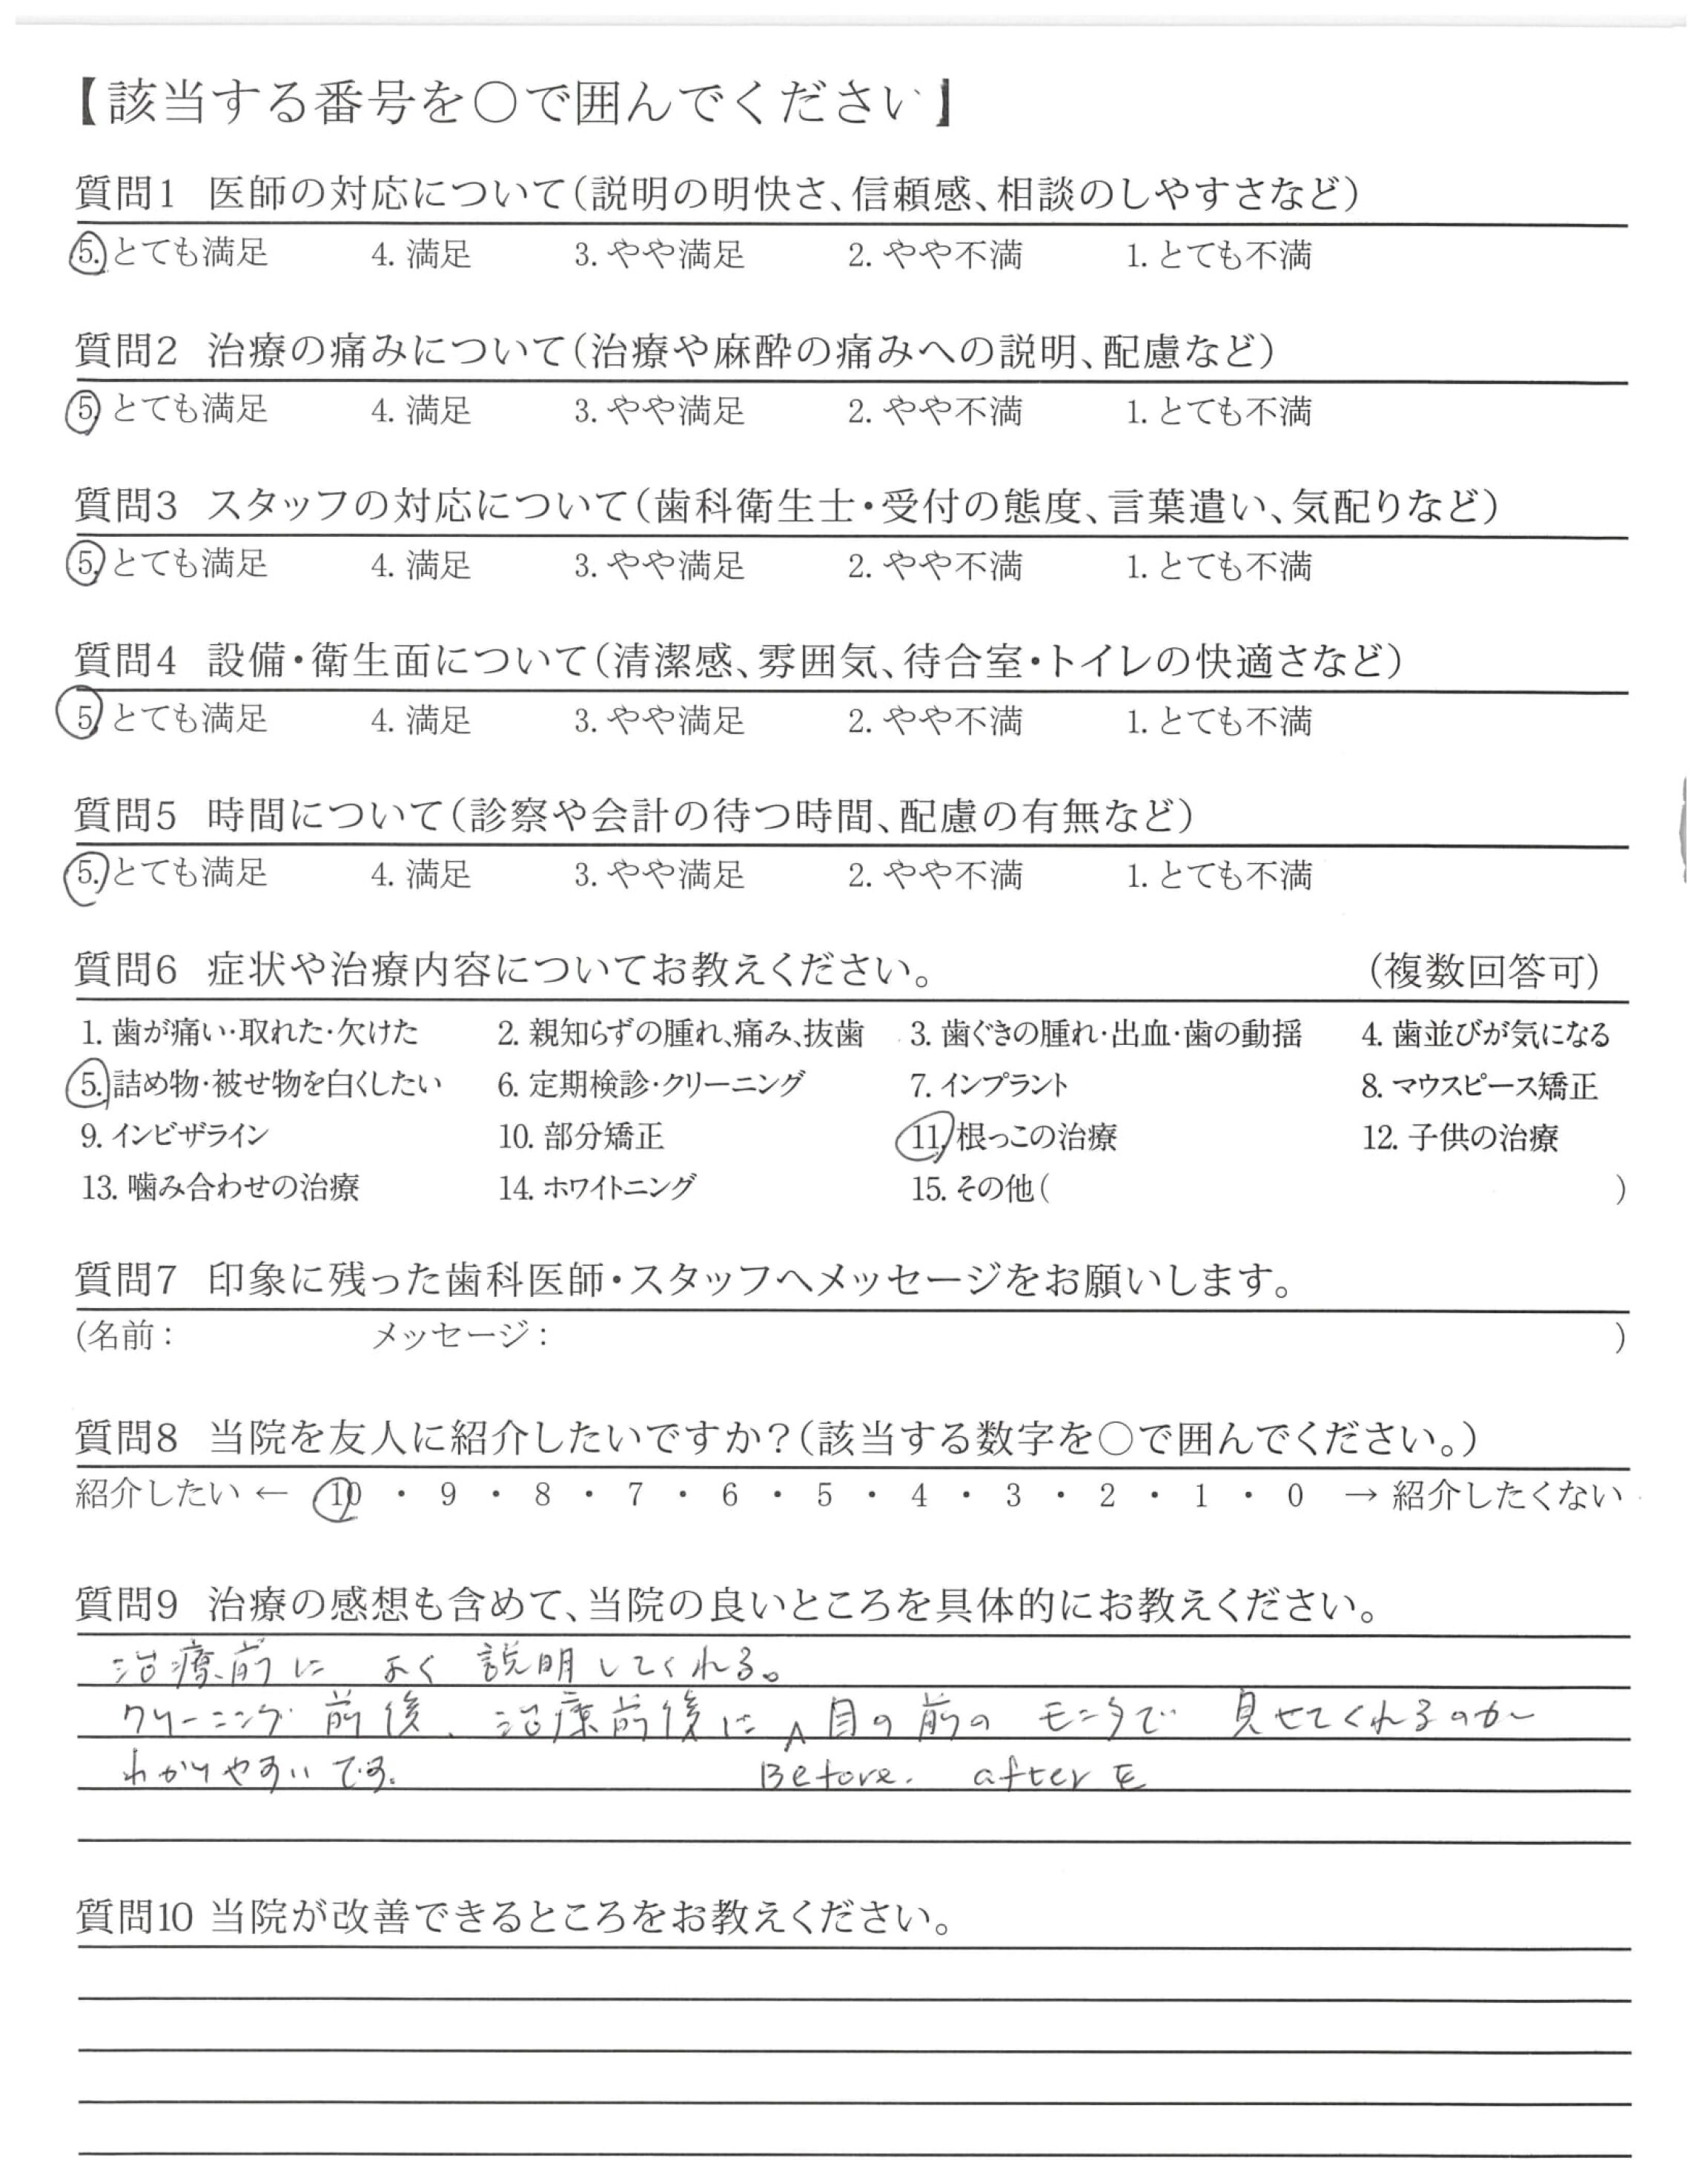 【該当する番号を○で囲んでください】
質問1 医師の対応について（説明の明快さ、信頼感、相談のしやすさなど）
5. とても満足 4. 満足 3. やや満足 2. やや不満 1. とても不満
質問2 治療の痛みについて（治療や麻酔の痛みへの説明、配慮など）
5. とても満足 4. 満足 3. やや満足 2. やや不満 1. とても不満
質問3 スタッフの対応について（歯科衛生士・受付の態度、言葉遣い、気配りなど）
5. とても満足 4. 満足 3. やや満足 2. やや不満 1. とても不満
質問4 設備・衛生面について（清潔感、雰囲気、待合室・トイレの快適さなど）
5. とても満足 4. 満足 3. やや満足 2. やや不満 1. とても不満
質問5 時間について（診察や会計の待つ時間、配慮の有無など）
5. とても満足 4. 満足 3. やや満足 2. やや不満 1. とても不満
質問6 症状や治療内容についてお教えください。 （複数回答可）
1. 歯が痛い・取れた・欠けた 2. 親知らずの腫れ、痛み、抜歯 3. 歯ぐきの腫れ・出血・歯の動揺 4. 歯並びが気になる
5. 詰め物・被せ物を白くしたい 6. 定期検診・クリーニング 7. インプラント 8. マウスピース矯正
9. インビザライン 10. 部分矯正 11. 根っこの治療 12. 子供の治療
13. 噛み合わせの治療 14. ホワイトニング 15. その他（ ）
質問7 印象に残った歯科医師・スタッフへメッセージをお願いします。
（名前： メッセージ： ）
質問8 当院を友人に紹介したいですか？（該当する数字を○で囲んでください。）
紹介したい ← 10 ・ 9 ・ 8 ・ 7 ・ 6 ・ 5 ・ 4 ・ 3 ・ 2 ・ 1 ・ 0 → 紹介したくない
質問9 治療の感想も含めて、当院の良いところを具体的にお教えください。
治療前に よく 説明してくれる。
クリーニング 前後、治療前後に 目の前の モニタで 見せてくれるのが
わかりやすいです。 Before. after を
質問10 当院が改善できるところをお教えください。